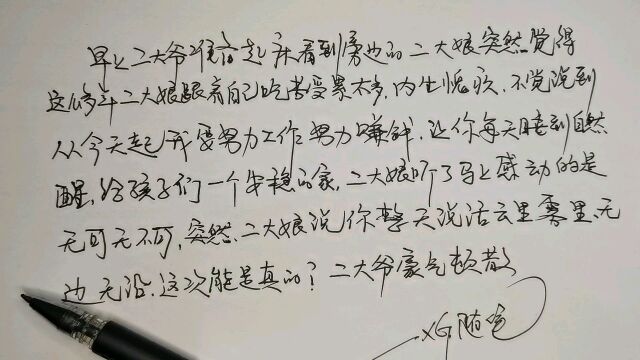 早上二大爷准备起床看到旁边的二大娘突然觉得
这么多年二大娘跟着自己吃苦受累太多,内生愧疚,不觉说到
从今天起我要努力工作努力赚钱,让你每天睡到自然
醒,给孩子们一个安稳的家,二大娘听了马上感动的是
无可无不可,突然二大娘说你整天说活云里雾里,无
边无沿,这次能是真的?二大爷豪气顿散
XG随笔